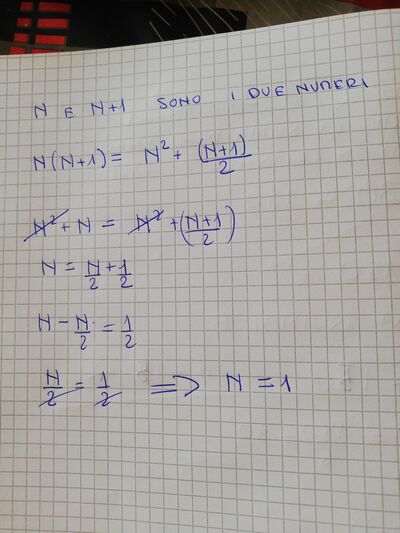 N E N+1 SONO I DUE NUMERI
N(N+1) = N² + (N+1)/2
N² + N = N² + (N+1/2)
N = N/2 + 1/2
N - N/2 = 1/2
N/2 = 1/2 ⇒ N = 1